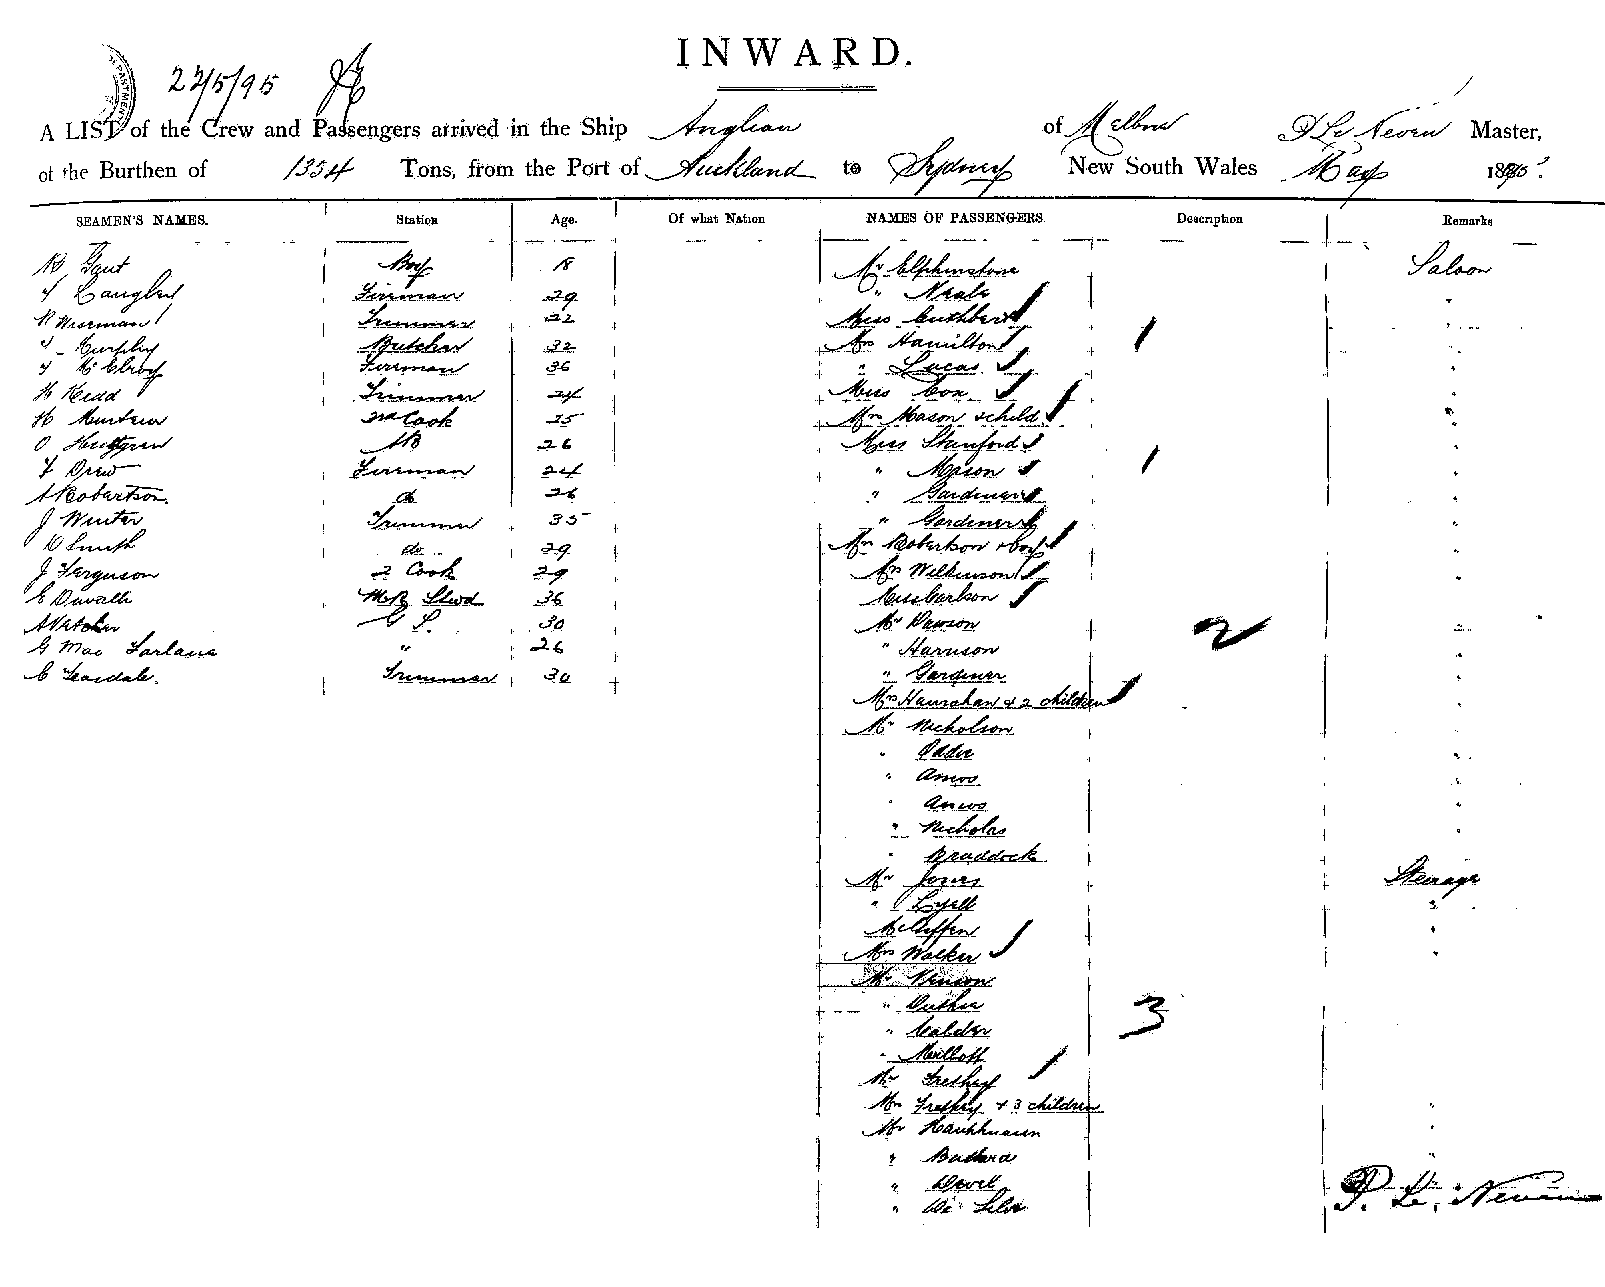 INWARD.
22/5/95
A LIST of the Crew and Passengers arrived in the Ship Anglian of Melbne P Le Neven Master,
of the Burthen of 1354 Tons, from the Port of Auckland to Sydney New South Wales May 1895
SEAMEN'S NAMES. Station Age. Of what Nation NAMES OF PASSENGERS. Description Remarks
Gaut Boy 18 Mr Elphinstone Saloon
Langley Firman 29 " Neale "
Trimmer 22 Miss Cuthbert "
Murphy Butcher 32 Mrs Hamilton "
McElroy Firman 36 " Lucas "
H Kidd Trimmer 24 Miss Cox "
H 3rd Cook 25 Mrs Mason & child "
O AB 26 Miss Stanford "
F Drew Firman 24 " Mason "
A Robertson do 26 " Gardiner "
J Winter Trimmer 35 " Gardiner "
D Smith do 29 Mrs Robertson & boy "
J Ferguson 2 Cook 29 Mrs Wilkinson "
E Duvall M.R. Stwd 36 Miss "
G S. 30 Mr Dawson "
G Mac Farlane " 26 " Harrison "
C Teasdale. Trimmer 30 " Gardiner "
Mrs Hanrahan & 2 children "
Mr Nicholson "
" "
" Amos "
" Amos "
" Nicholas "
" Braddock
Mr Jones Steerage
" Lyell "
"
Mrs Walker "
Mr
"
" Calder
"
Mr
Mrs & 3 children "
Mr "
" "
" "
" De Silva
P. Le. Neven